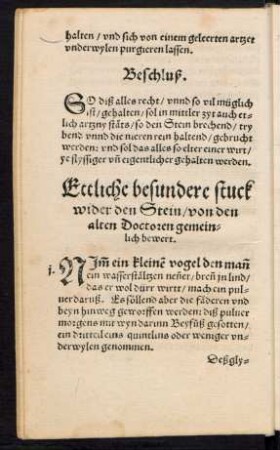 halten / vnd sich von einem geleerten artzet
vnderwylen purgieren lassen.
Beschluß.
SO diß alles recht / vnnd so vil müglich
ist / gehalten / sol in mittler zyt auch et-
lich artzny stäts / so den Stein brechend / try
bend vnnd die nieren rein haltend / gebrucht
werden: vnd sol das alles so elter einer wirt /
ye flyssiger vñ eigenlicher gehalten werden.
Ettliche besundere stuck
wider den Stein / von den
alten Doctoren gemein-
lich bewert.
j. NJm̃ ein kleinẽ vogel den mañ
ein wasserstältzen neñet / breñ jn lind /
das er wol dürr wirt / mach ein pul-
uer daruß. Es söllend aber die fäderen vnd
beyn hinweg geworffen werden: diß puluer
morgens mit wyn darinn Beyfůß gesotten /
ein dritteil eins quintlins oder weniger vn-
derwylen genommen.
Deßgly-